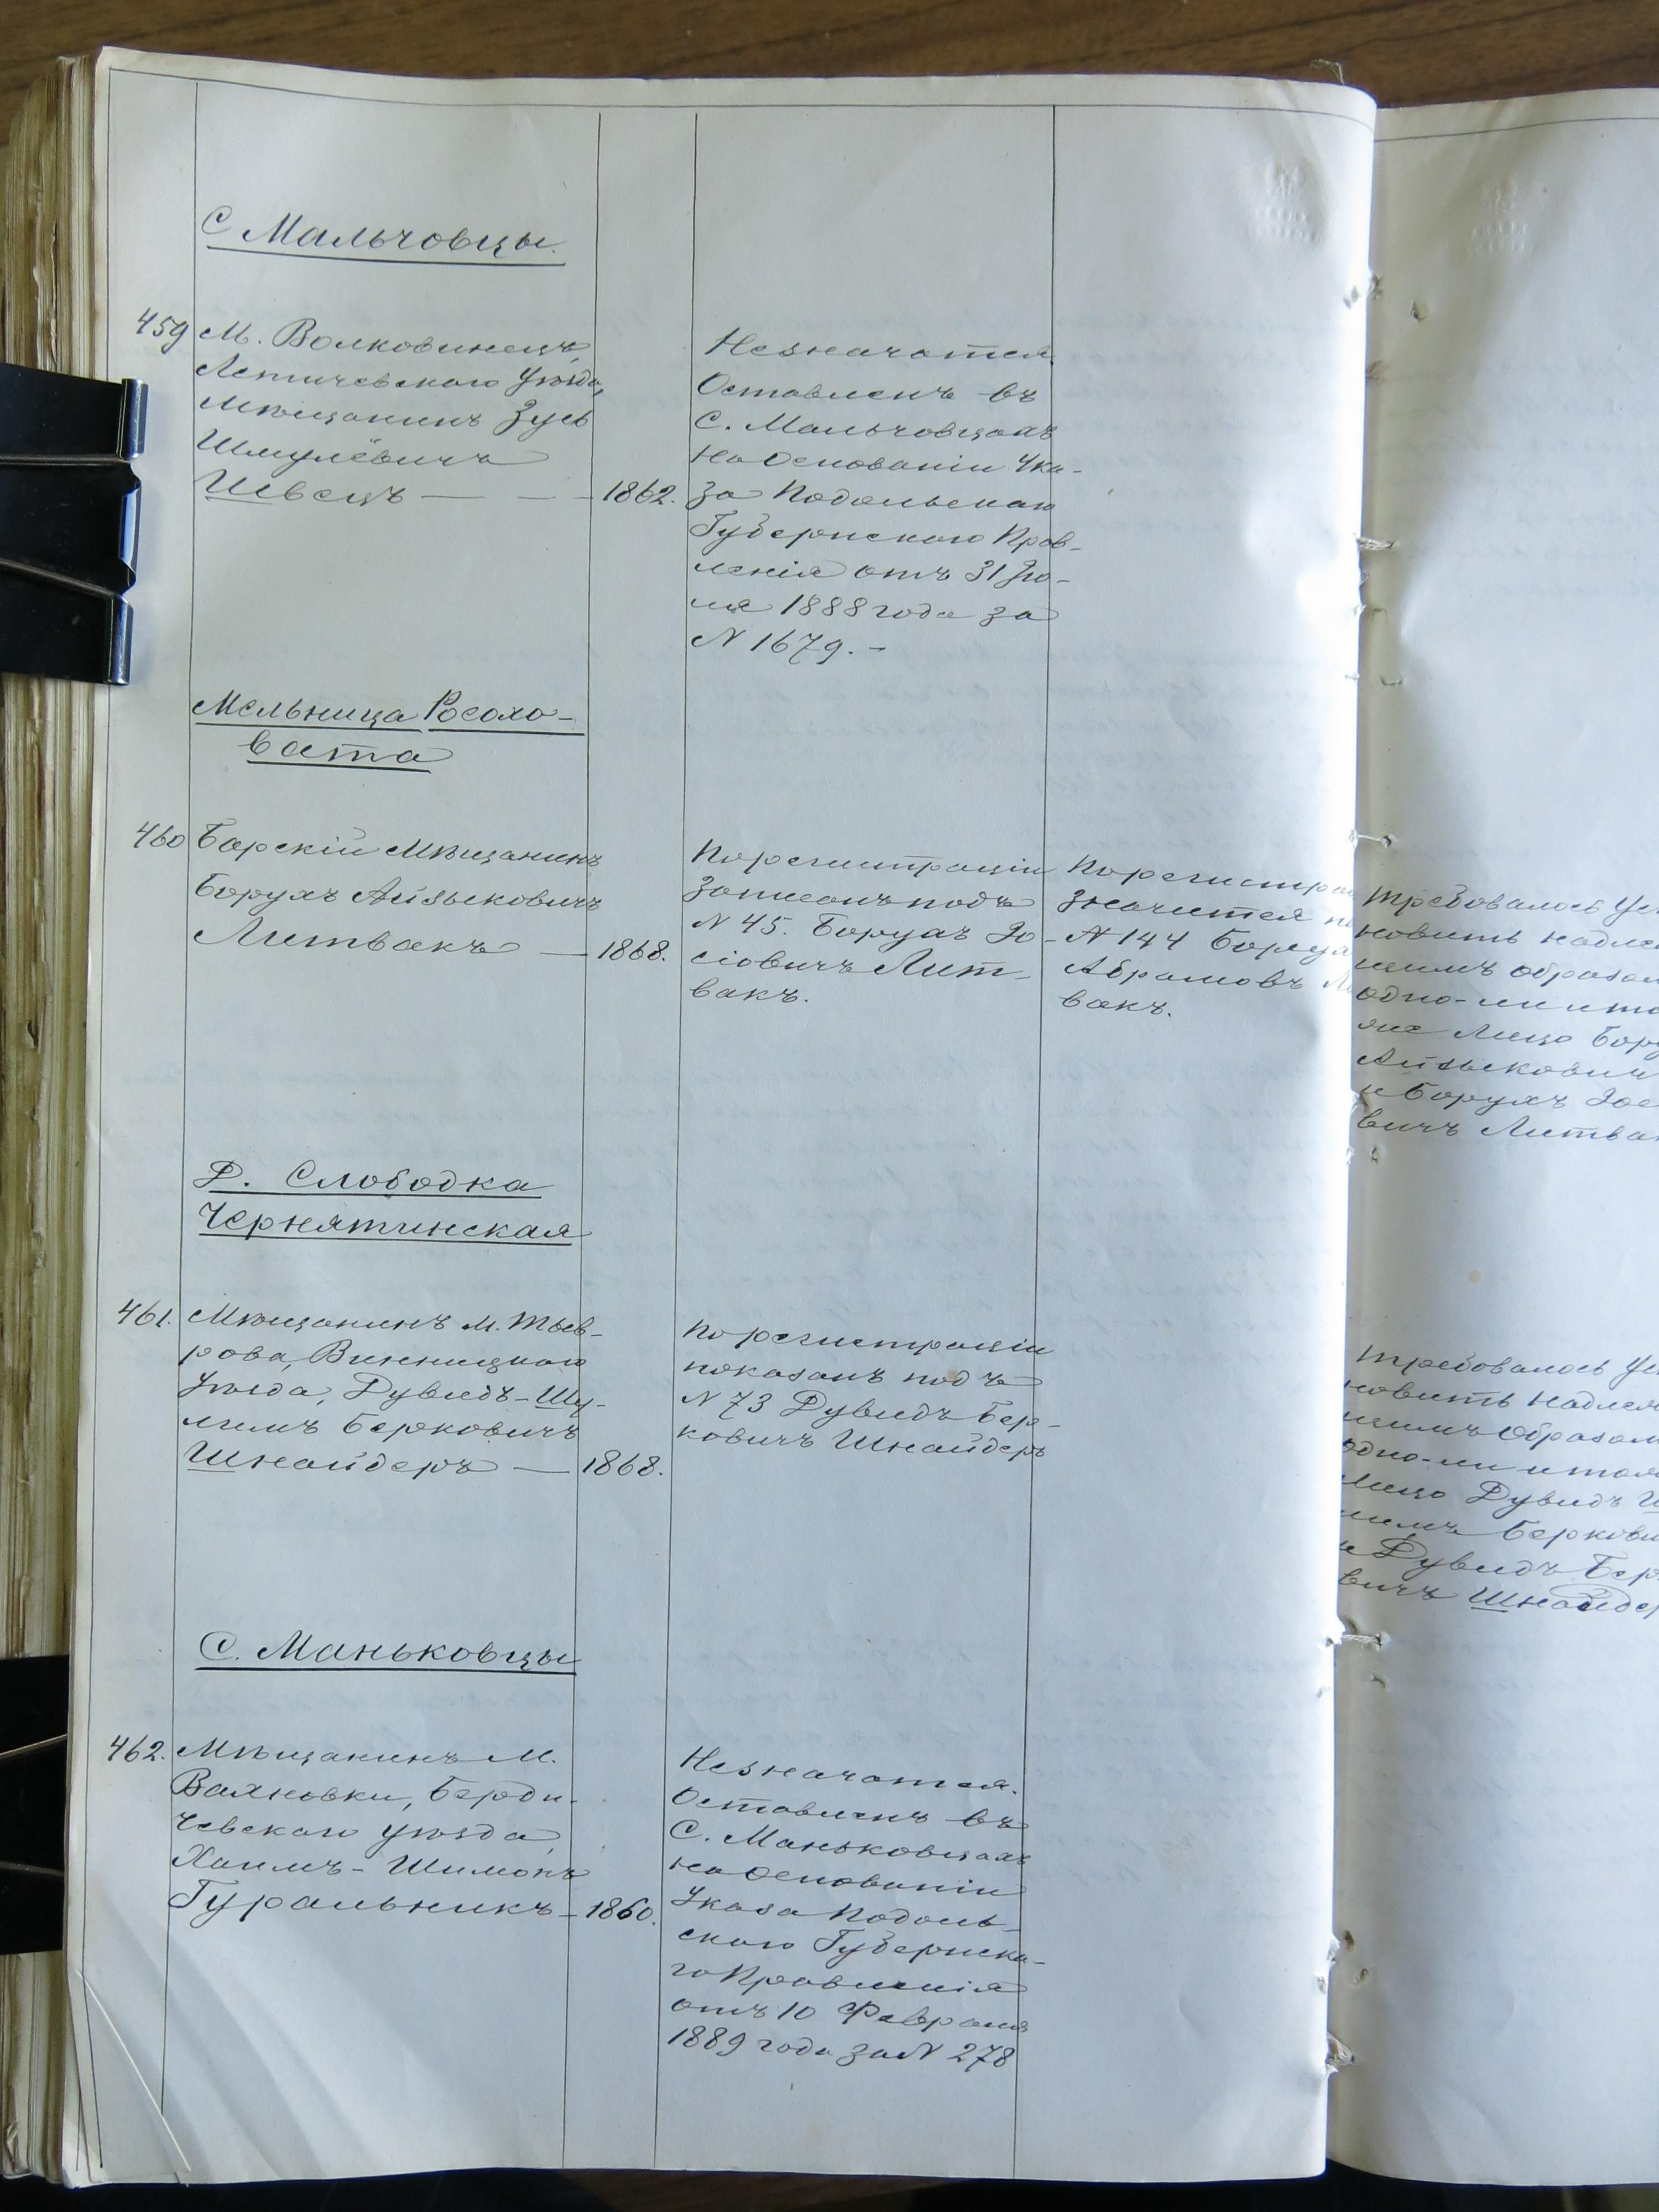 С Мальчовцы.
459 М. Волковинецъ,
Летичевского Уѣзда,
Мѣщанинъ Зусь
Шмулёвичъ
Швецъ — — — 1862.
Незначатся.
Оставленъ въ
С. Мальчовцахъ
на основаніи Ука-
за Подольскаго
Губернскаго Прав-
ленія отъ 31 Iю-
ля 1888 года за
N 1679. -
Мельница Росохо-
вата
460 Барскій Мѣщанинъ
Борухъ Айзыковичъ
Литвакъ — 1868.
По регистраціи
записанъ подъ
N 45. Борухъ Iо-
сіовичъ Лит-
вакъ.
По регистра
значится
N 144 Борух
Абрамовъ
вакъ.
требовалось
новить
щимъ образом
одно-ли и то
же лицо Бору
Айзыкович
и Борухъ Iос
вичъ Литва
Д. Слободка
Чернятинская
461. Мѣщанинъ м. Тыв-
рова, Винницкаго
Уѣзда, Дувидъ-Шу-
лимъ Берковичъ
Шнайдеръ — 1868.
По регистраціи
показанъ подъ
N 73 Дувидъ Бер-
ковичъ Шнайдеръ
требовалось
новить надлеж
щимъ образом
одно-ли и тоже
лицо Дувидъ Ш
лимъ Беркови
и Дувидъ Бер
вичъ Шнайдер
С. Маньковцы
462. Мѣщанинъ М.
Вахновки, Берди-
чевскаго уѣзда,
Хаимъ-Шимонъ
Гуральникъ — 1860.
Незначатся.
Оставленъ въ
С. Маньковцахъ
на основаніи
Указа Подоль-
скаго Губернска-
го Правленія
отъ 10 Февраля
1889 года за N 278